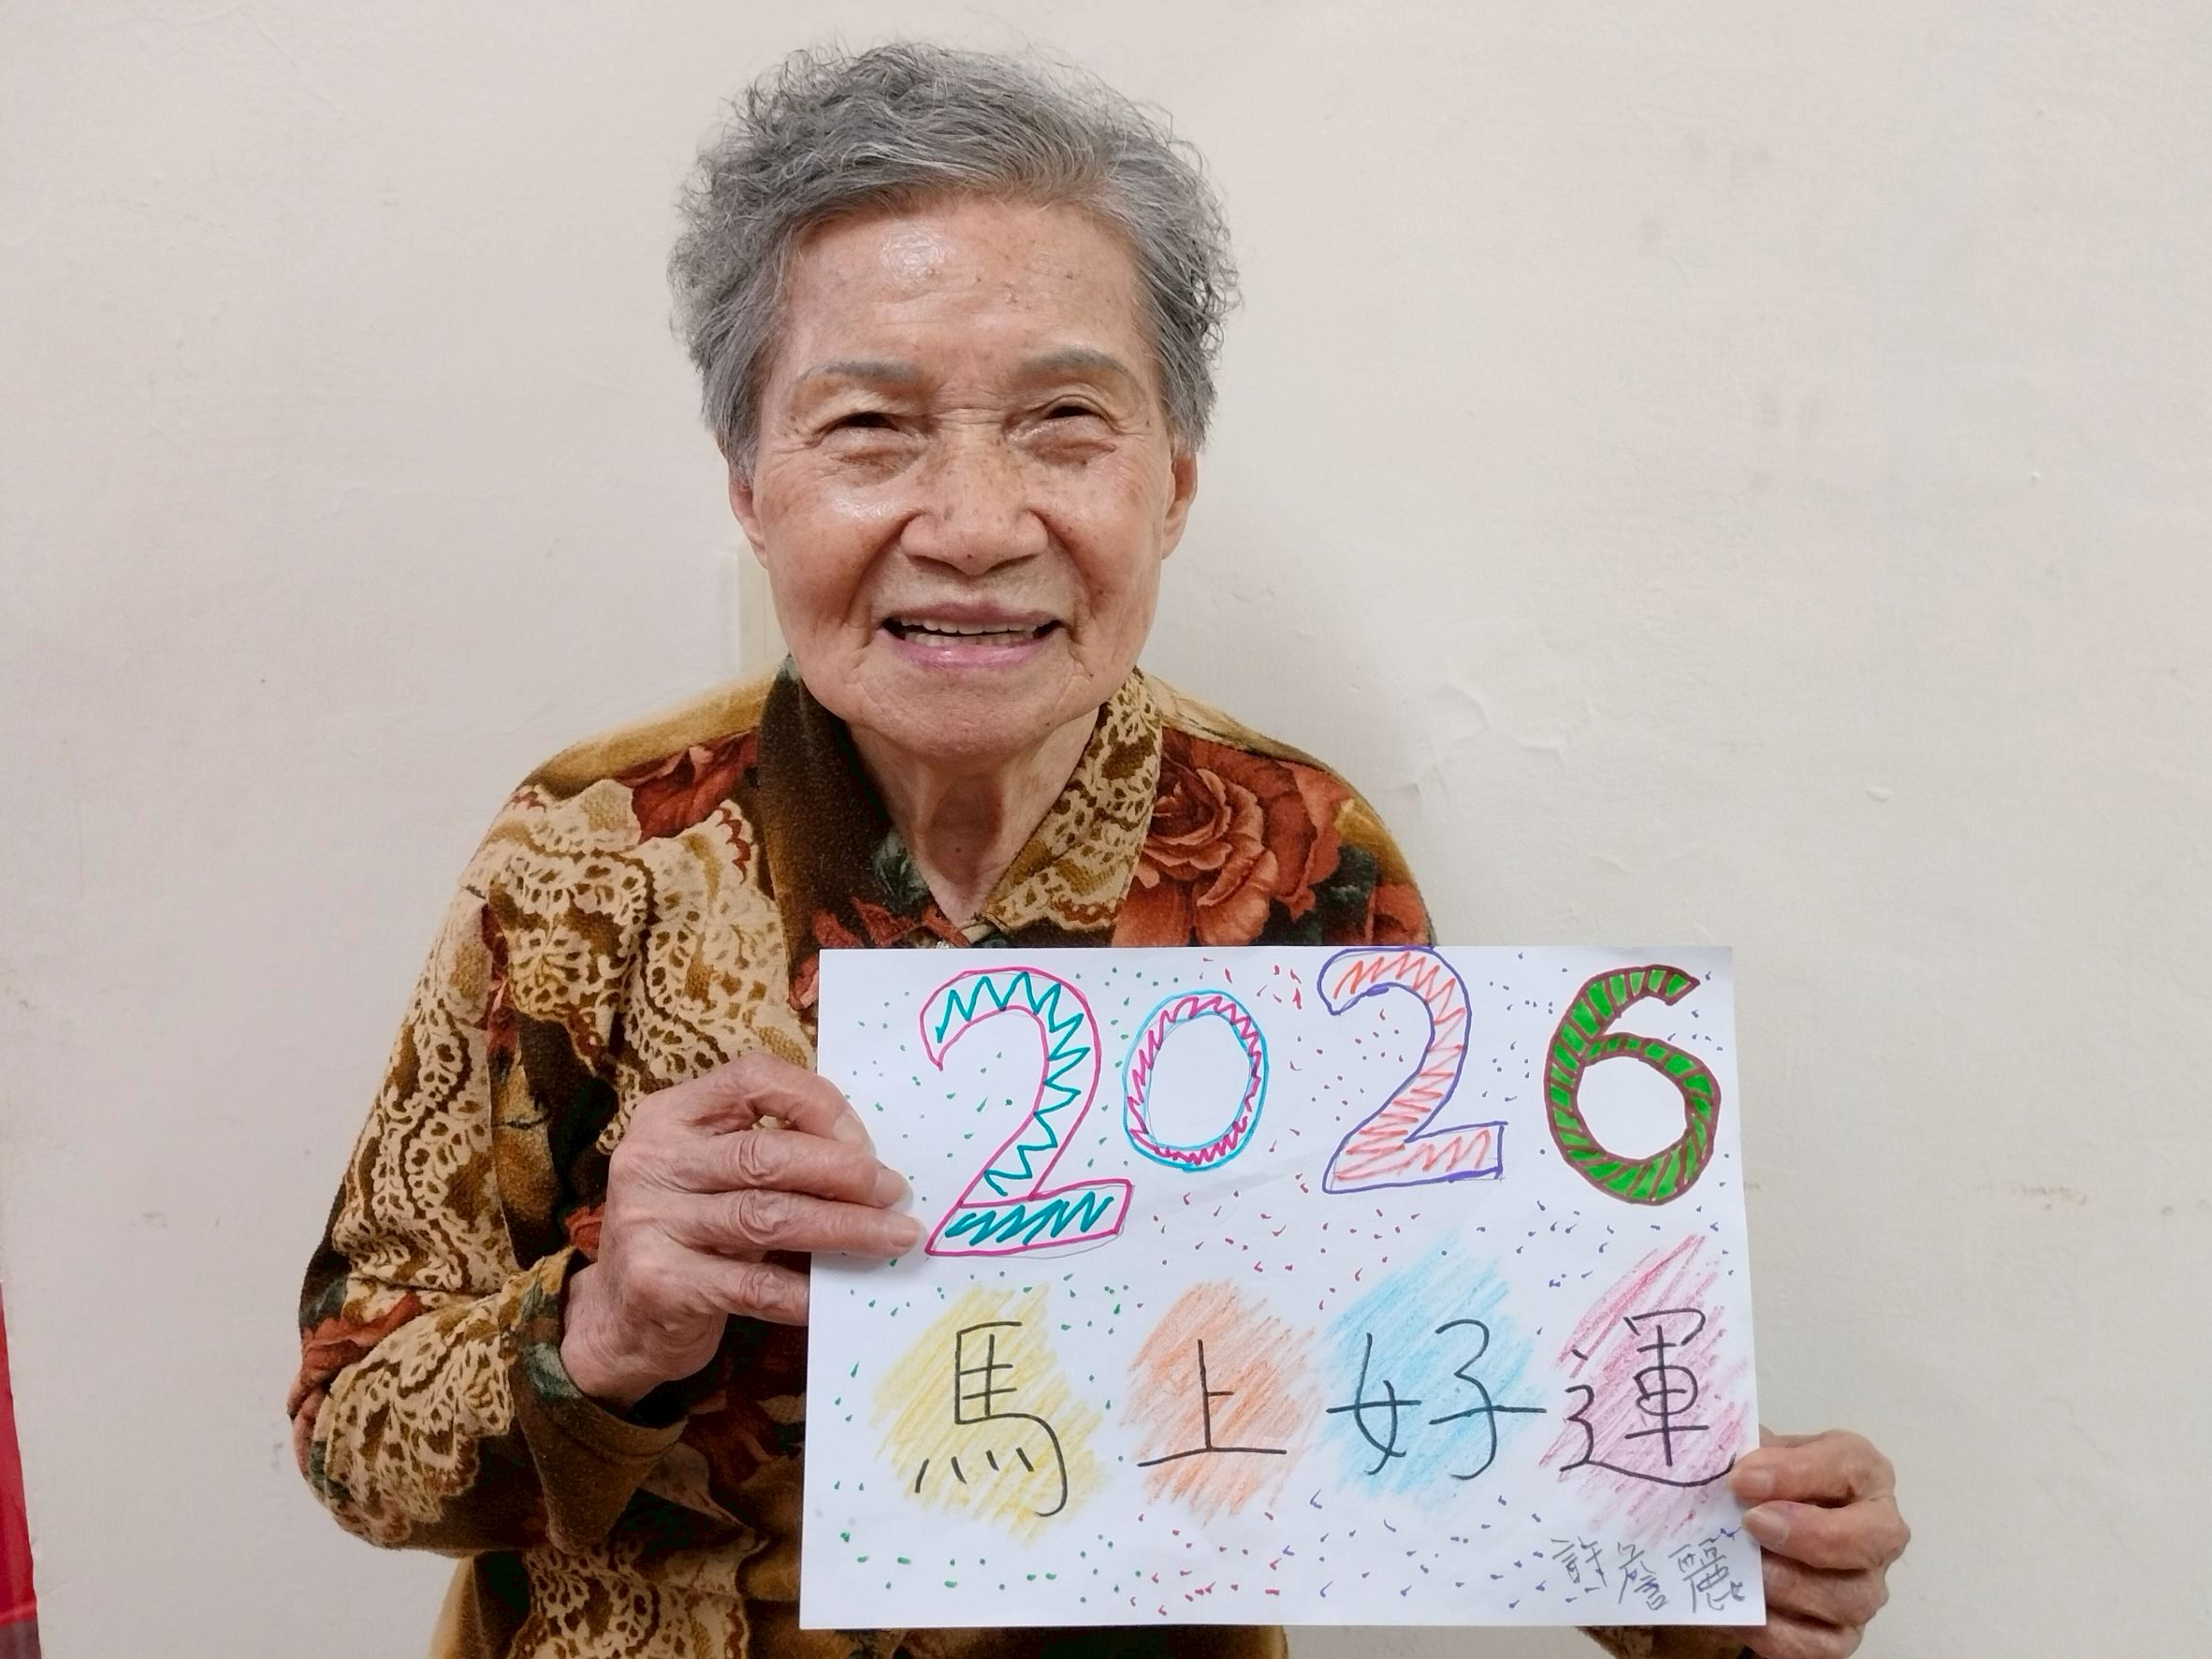 2026
馬上好運
許詹麗